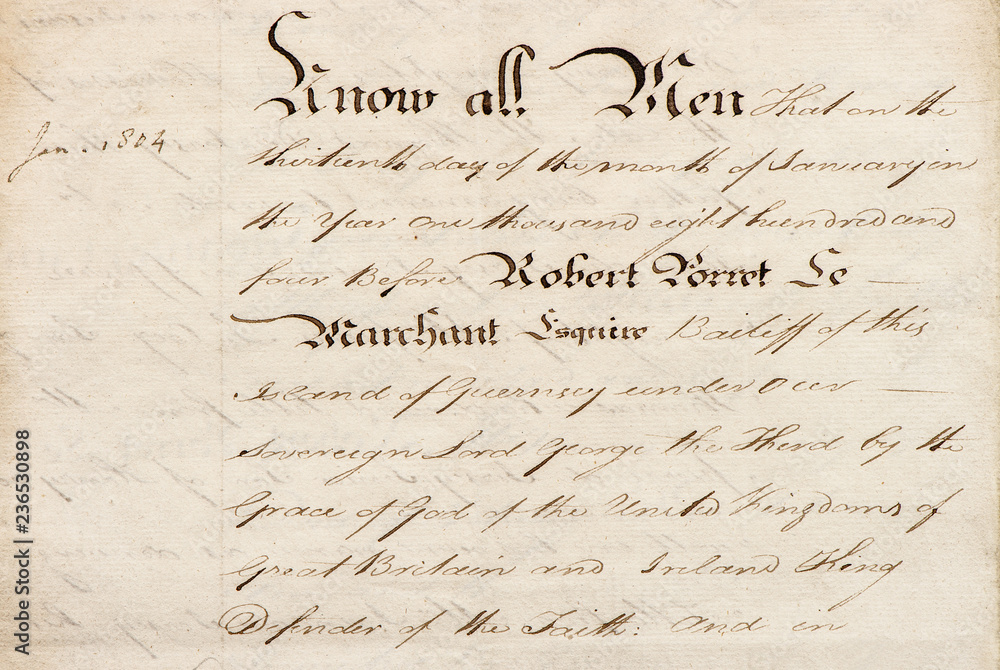 Know all Men That on the
Jan. 1804
thirteenth day of the month of January in
the Year One thousand eight hundred and
four Before Robert Porret Le
Marchant Esquire Bailiff of this
Island of Guernsey under Our
Sovereign Lord George the Third by the
Grace of God of the United Kingdoms of
Great Britain and Ireland King
Defender of the Faith: And in
Adobe Stock | #236530898